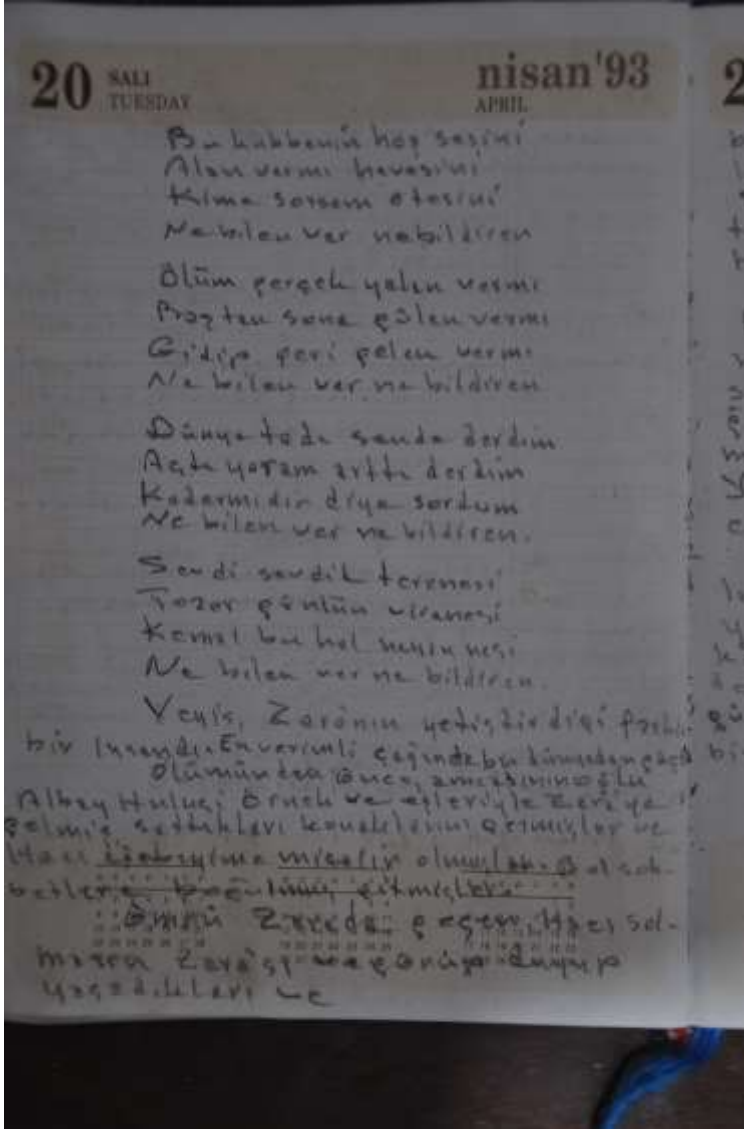 20 SALI TUESDAY nisan'93 APRIL
Bu kubbenin hoş sesini
Alan varmı havasını
Kime sorsam ötesini
Ne bilen var nebildiren
Ölüm gerçek yalan varmı
Baştan sona gülen varmı
Gidip geri gelen varmı
Ne bilen var ne bildiren
Dünyatada sende derdim
Açtı yaram arttı derdim
Kadermidir diye sordum
Ne bilen var ne bildiren.
Sevdi sevdik terenesi
Tozar gönlün viranesi
Kemal bu hal neyin nesi
Ne bilen var ne bildiren.
Veyis, Zaranın yetiştirdiği
bir İnsandı. En verimli çağında bu dünyadan
Ölümünden önce, amcasınınoğlu
Albay Hulusi Örnek ve eşleriyle Zara'ya
gelmiş sattıkları konaklarını gezmişler ve
Hacı misafir olmuşlar. Bol soh-
betlere gitmişler.
Ömrü Zarada geçen, Hacı sol-
Zara'sı
yaşadıkları ve